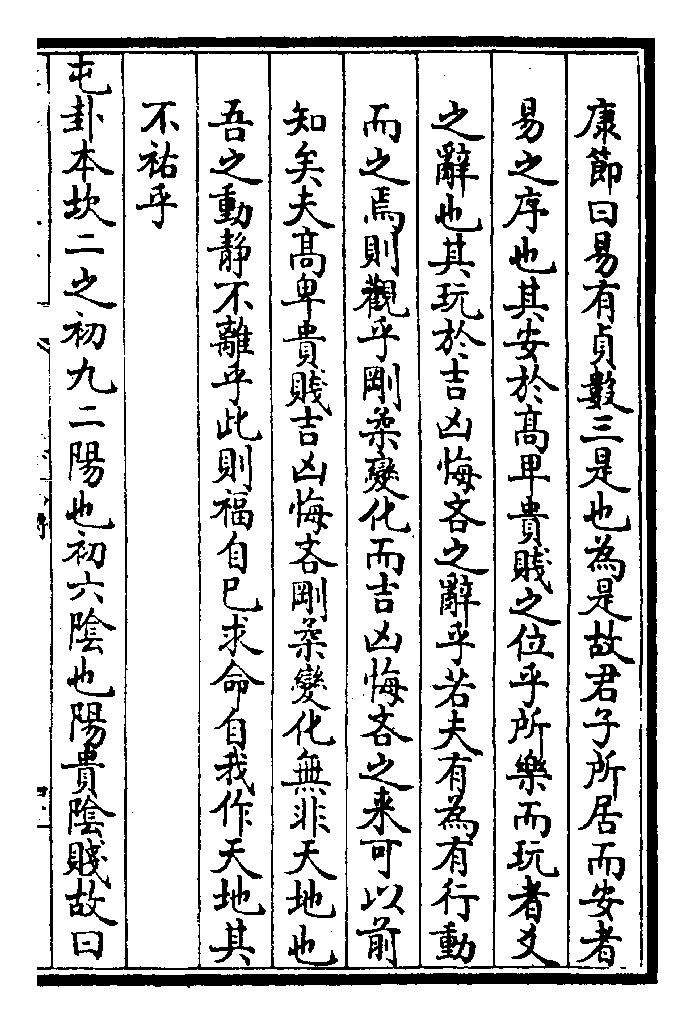 康節曰易有貞數三是也為是故君子所居而安者
易之序也其安於高卑貴賤之位乎所樂而玩者爻
之辭也其玩於吉凶悔吝之辭乎若夫有為有行動
而之焉則觀乎剛柔變化而吉凶悔吝之来可以前
知矣夫高卑貴賤吉凶悔吝剛柔變化無非天地也
吾之動静不離乎此則福自已求命自我作天地其
不祐乎
屯卦本坎二之初九二陽也初六陰也陽貴陰賤故曰